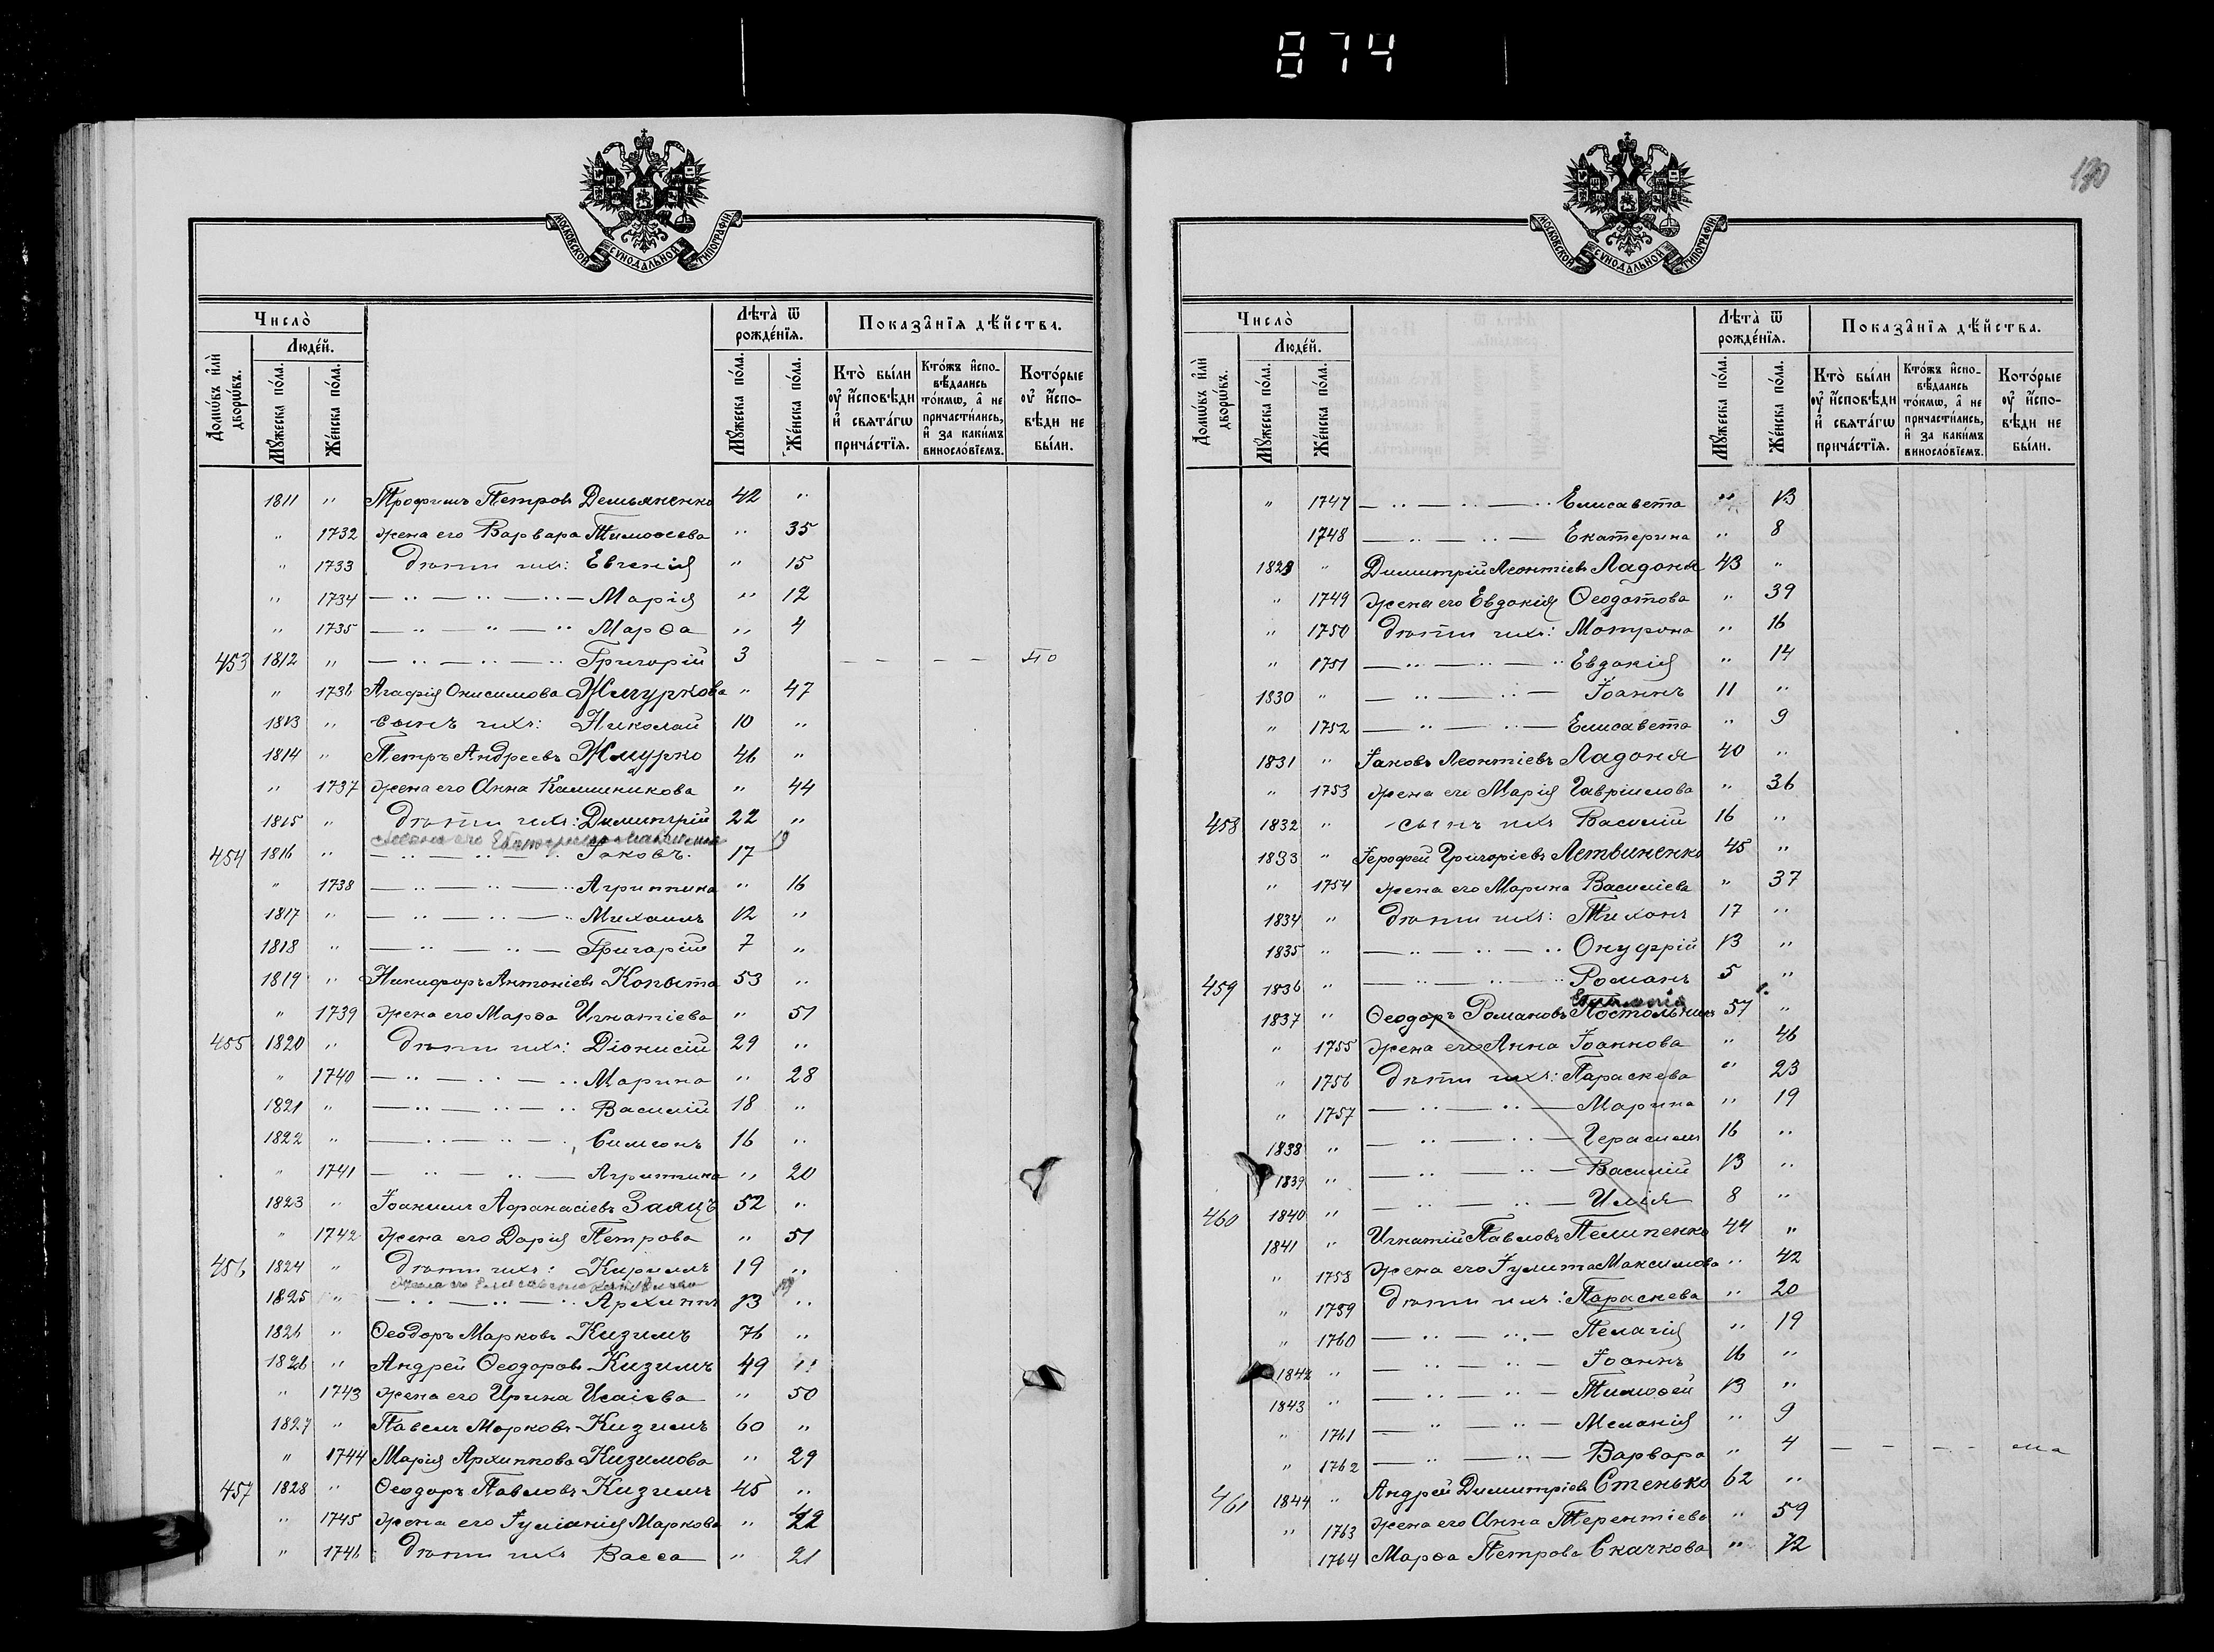 874
МОСКОВСКОЙ СѴНОДАЛЬНОЙ ТИПОГРАФІИ
Число̀
Люде́й.
Домѡ́въ и҆лѝ дворѡ́въ.
Мꙋ́жеска по́ла.
Же́нска по́ла.
Лѣ́та ѿ рожде́нїѧ.
Мꙋ́жеска по́ла.
Же́нска по́ла.
Показа̑нїѧ дѣ́йства.
Кто̀ бы́ли оу҆ и҆́сповѣди и҆ свѧта́гѡ прича́стїѧ.
Кто́жъ и҆спо-вѣ́дались то́кмѡ, а҆ не причасти́лись, и҆ за каки́мъ виносло́вїемъ.
Кото́рые оу҆ и҆́спо-вѣди не бы́ли.
1811 " Трофимъ Петровъ Демьяненко 42 "
" 1732 жена его Варвара Тимоѳеева " 35
" 1733 дѣти ихъ: Евгенія " 15
" 1734 — " — " — " — Марія " 12
" 1735 — " — " — " Марѳа " 4
453 1812 " — " — " — " Григорій 3 — — — —
" 1736 Агафія Онисимова Жмуркова " 47
1813 " сынъ ихъ: Николай 10 "
1814 " Петръ Андреевъ Жмурко 46 "
" 1737 жена его Анна Калинникова " 44
1815 " дѣти ихъ: Димитрій 22 "
жена его Екатерина 19
454 1816 " — " — " — " Іаковъ. 17
" 1738 — " — " — " Агриппина " 16
1817 " — " — " — " Михаилъ 12 "
1818 " — " — " — Григорій 7 "
1819 " Никифоръ Антоніевъ Копыта 53 "
" 1739 жена его Марѳа Игнатіева " 51
455 1820 " дѣти ихъ: Діонисій 29 "
" 1740 — " — " — " Марина " 28
1821 " — " — " — " Василій 18 "
1822 " — " — " — " Симеонъ 16 "
" 1741 — " — " — Агриппина " 20
1823 " Іоакимъ Аѳанасіевъ Заяцъ 52 "
" 1742 жена его Дарія Петрова " 51
456 1824 " дѣти ихъ: Кириллъ 19 "
жена его Елисавета 19
1825 " — " — " — " Архиппъ 13 "
1826 " Ѳеодоръ Марковъ Кизимъ 76 "
1826 " Андрей Ѳеодоровъ Кизимъ 49 "
" 1743 жена его Ирина Исаіева " 50
1827 " Павелъ Марковъ Кизимъ 60 "
" 1744 Марія Архиппова Кизимова " 29
457 1828 " Ѳеодоръ Павловъ Кизимъ 45 "
" 1745 жена его Іуліанія Маркова " 42
" 1746 дѣти ихъ Васса " 21
МОСКОВСКОЙ СѴНОДАЛЬНОЙ ТИПОГРАФІИ
Число̀
Люде́й.
Домѡ́въ и҆лѝ дворѡ́въ.
Мꙋ́жеска по́ла.
Же́нска по́ла.
Лѣ́та ѿ рожде́нїѧ.
Мꙋ́жеска по́ла.
Же́нска по́ла.
Показа̑нїѧ дѣ́йства.
Кто̀ бы́ли оу҆ и҆́сповѣди и҆ свѧта́гѡ прича́стїѧ.
Кто́жъ и҆спо-вѣ́дались то́кмѡ, а҆ не причасти́лись, и҆ за каки́мъ виносло́вїемъ.
Кото́рые оу҆ и҆́спо-вѣди не бы́ли.
" 1747 — " — " — " Елисавета " 13
1748 — " — " — Екатерина " 8
1829 " Димитрій Леонтіевъ Ладоня 43 "
" 1749 жена его Евдокія Ѳеодотова " 39
" 1750 дѣти ихъ: Матрона " 16
" 1751 — " — " — " Евдокія " 14
1830 " — " — " — Іоаннъ 11 "
" 1752 — " — " — Елисавета " 9
1831 " Іаковъ Леонтіевъ Ладоня 40 "
" 1753 жена его Марія Гавріилова " 36
458 1832 " сынъ ихъ Василій 16 "
1833 " Іерофей Григоріевъ Летвиненко 45 "
" 1754 жена его Марина Василіева " 37
1834 " дѣти ихъ: Тихонъ 17 "
1835 " — " — " — " Онуфрій 13 "
459 1836 " — " — " — " Романъ 5 "
1837 " Ѳеодоръ Романовъ Постольникъ 57 "
" 1755 жена его Анна Іоаннова " 46
" 1756 дѣти ихъ: Параскева " 23
" 1757 — " — " — Марина " 19
1838 " — " — " — Герасимъ 16 "
1839 " — " — " — Василій 13 "
460 1840 " — " — " — Илія 8 "
1841 " Игнатій Павловъ Пелипенко 44 "
" 1758 жена его Іулита Максимова " 42
" 1759 дѣти ихъ: Параскева " 20
" 1760 — " — " — Пелагія " 19
1842 " — " — " — Іоаннъ 16 "
1843 " — " — " — Тимоѳей 13 "
" 1761 — " — " — Меланія " 9
" 1762 — " — " — Варвара " 4 — — — — ма
461 1844 " Андрей Димитріевъ Стенько 62 "
" 1763 жена его Анна Терентіева " 59
1764 Марѳа Петрова Скачкова " 72